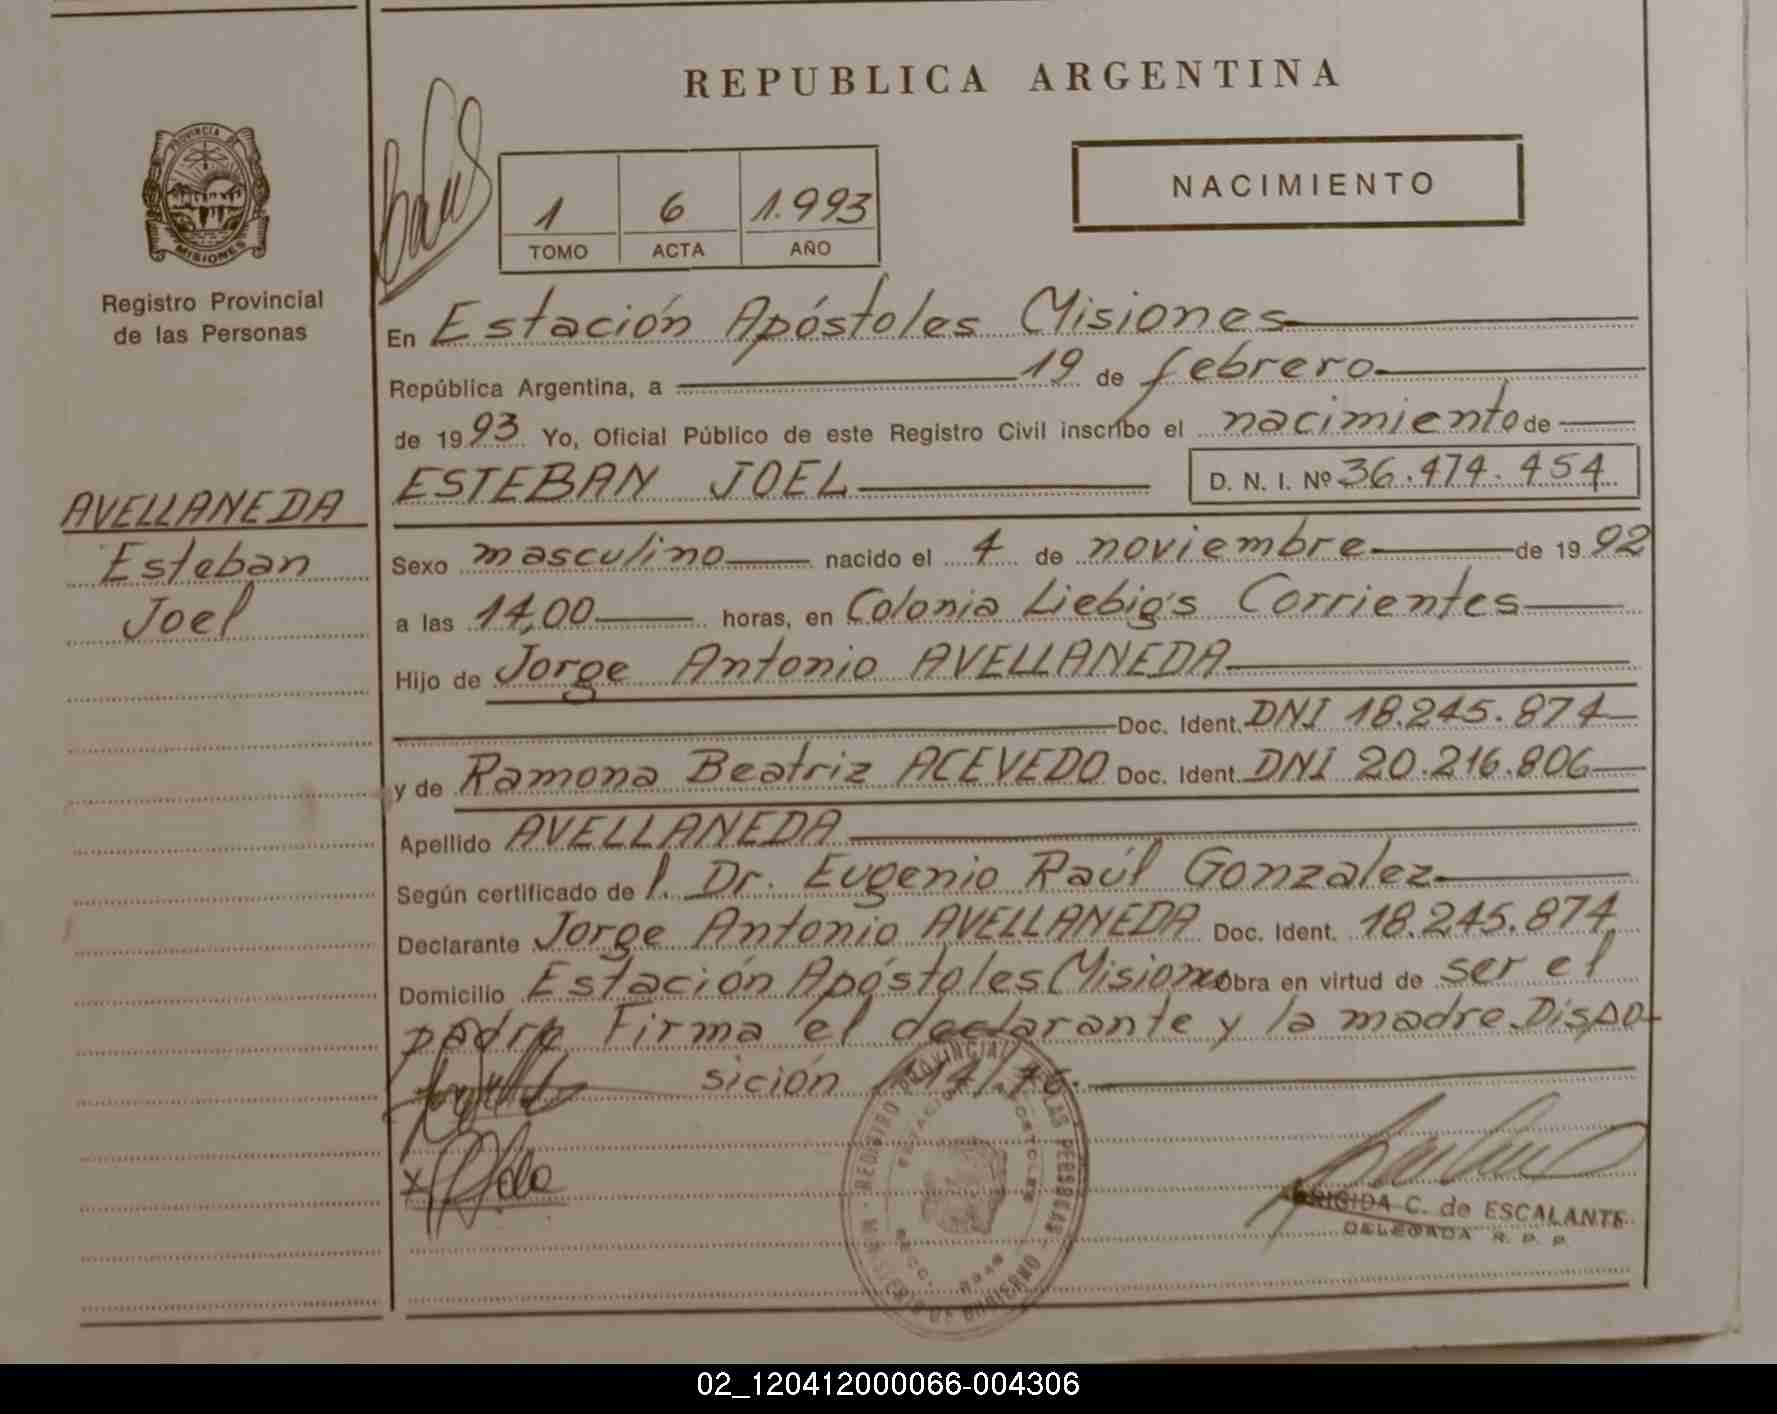 REPUBLICA ARGENTINA
PROVINCIA DE
MISIONES
Registro Provincial
de las Personas
1 6 1.993
TOMO ACTA AÑO
NACIMIENTO
En Estación Apóstoles Misiones
República Argentina, a 19 de febrero
de 1993 Yo, Oficial Público de este Registro Civil inscribo el nacimiento de
ESTEBAN JOEL D. N. I. Nº 36.474.454
AVELLANEDA
Esteban
Joel
Sexo masculino nacido el 4 de noviembre de 1992
a las 14,00 horas, en Colonia Liebig's Corrientes
Hijo de Jorge Antonio AVELLANEDA
Doc. Ident. DNI 18.245.874
y de Ramona Beatriz ACEVEDO Doc. Ident. DNI 20.216.806
Apellido AVELLANEDA
Según certificado de l. Dr. Eugenio Raúl Gonzalez
Declarante Jorge Antonio AVELLANEDA Doc. Ident. 18.245.874
Domicilio Estación Apóstoles Misiones Obra en virtud de ser el
padre Firma el declarante y la madre Dispo
sición
REGISTRO PROVINCIAL DE LAS PERSONAS
MINISTERIO DE GOBIERNO
BRIGIDA C. de ESCALANTE
DELEGADA R. P. P.
02_120412000066-004306